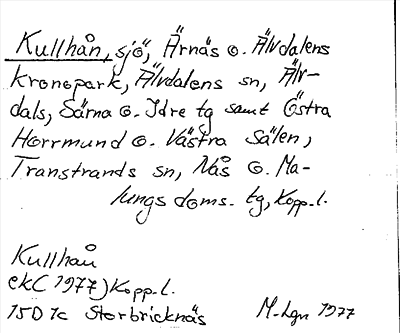 Kullhån, sjö, Ärnäs o. Älvdalens
kronopark, Älvdalens sn, Älv-
dals, Särna o. Idre tg samt Östra
Horrmund o. Västra Sälen,
Transtrands sn, Nås o. Ma-
lungs doms. tg, Kopp. l.
Kullhån
ekC 1977) Kopp. l.
15D 7c Storbricknäs
M-lgn 1977